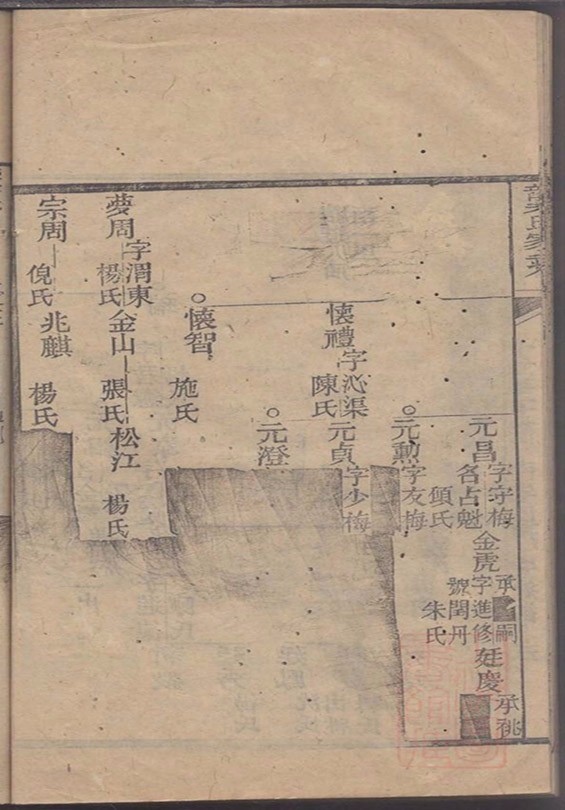 元昌
字守梅
名占魁
顧氏
金虎
承
嗣
字進修
號閏丹
朱氏
廷慶
承祧
元勲
字友梅
懷禮
字沁渠
陳氏
元貞
字少梅
元澄
懷智
施氏
夢周
字渭東
楊氏
金山
張氏
松江
楊氏
宗周
倪氏
兆麒
楊氏